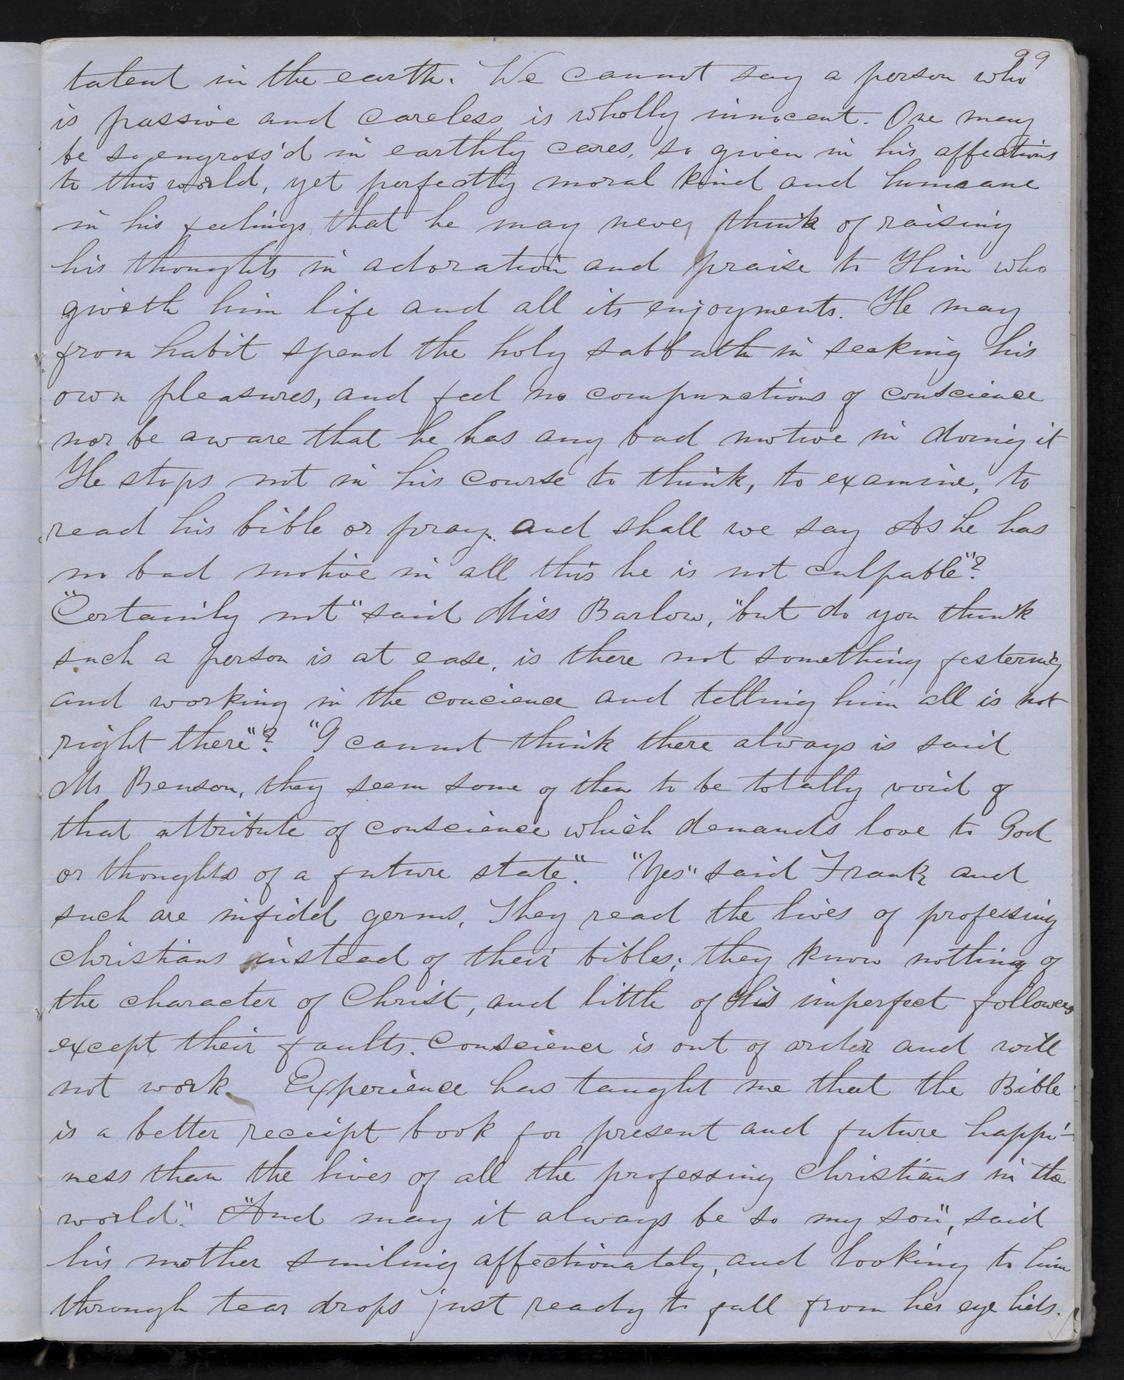 99
talent in the earth. We cannot say a person who
is passive and careless is wholly innocent. One may
be so engross'd in earthly cares, so given in his affections
to this world, yet perfectly moral kind and humane
in his feelings, that he may never think of raising
his thoughts in adoration and praise to Him who
giveth him life and all its enjoyments. He may
from habit spend the holy sabbath in seeking his
own pleasures, and feel no compunctions of conscience
nor be aware that he has any bad motive in doing it
He stops not in his course to think, to examine, to
read his bible or pray. and shall we say As he has
no bad motive in all this he is not culpable"?
"Certainly not" said Miss Barlow, "but do you think
such a person is at ease, is there not something festering
and working in the concience and telling him all is not
right there"? "I cannot think there always is said
Mr Benson, they seem some of them to be totally void of
that attribute of conscience which demands love to God
or thoughts of a future state". "Yes" said Frank and
such are infidel germs. They read the lives of professing
christians instead of their bibles; they know nothing of
the character of Christ, and little of His imperfect followers
except their faults. Conscience is out of order and will
not work. Experience has taught me that the Bible
is a better receipt book for present and future happi-
ness than the lives of all the professing Christians in the
world". "And may it always be so my son", said
his mother smiling affectionately, and looking to him
through tear drops just ready to fall from her eye lids.